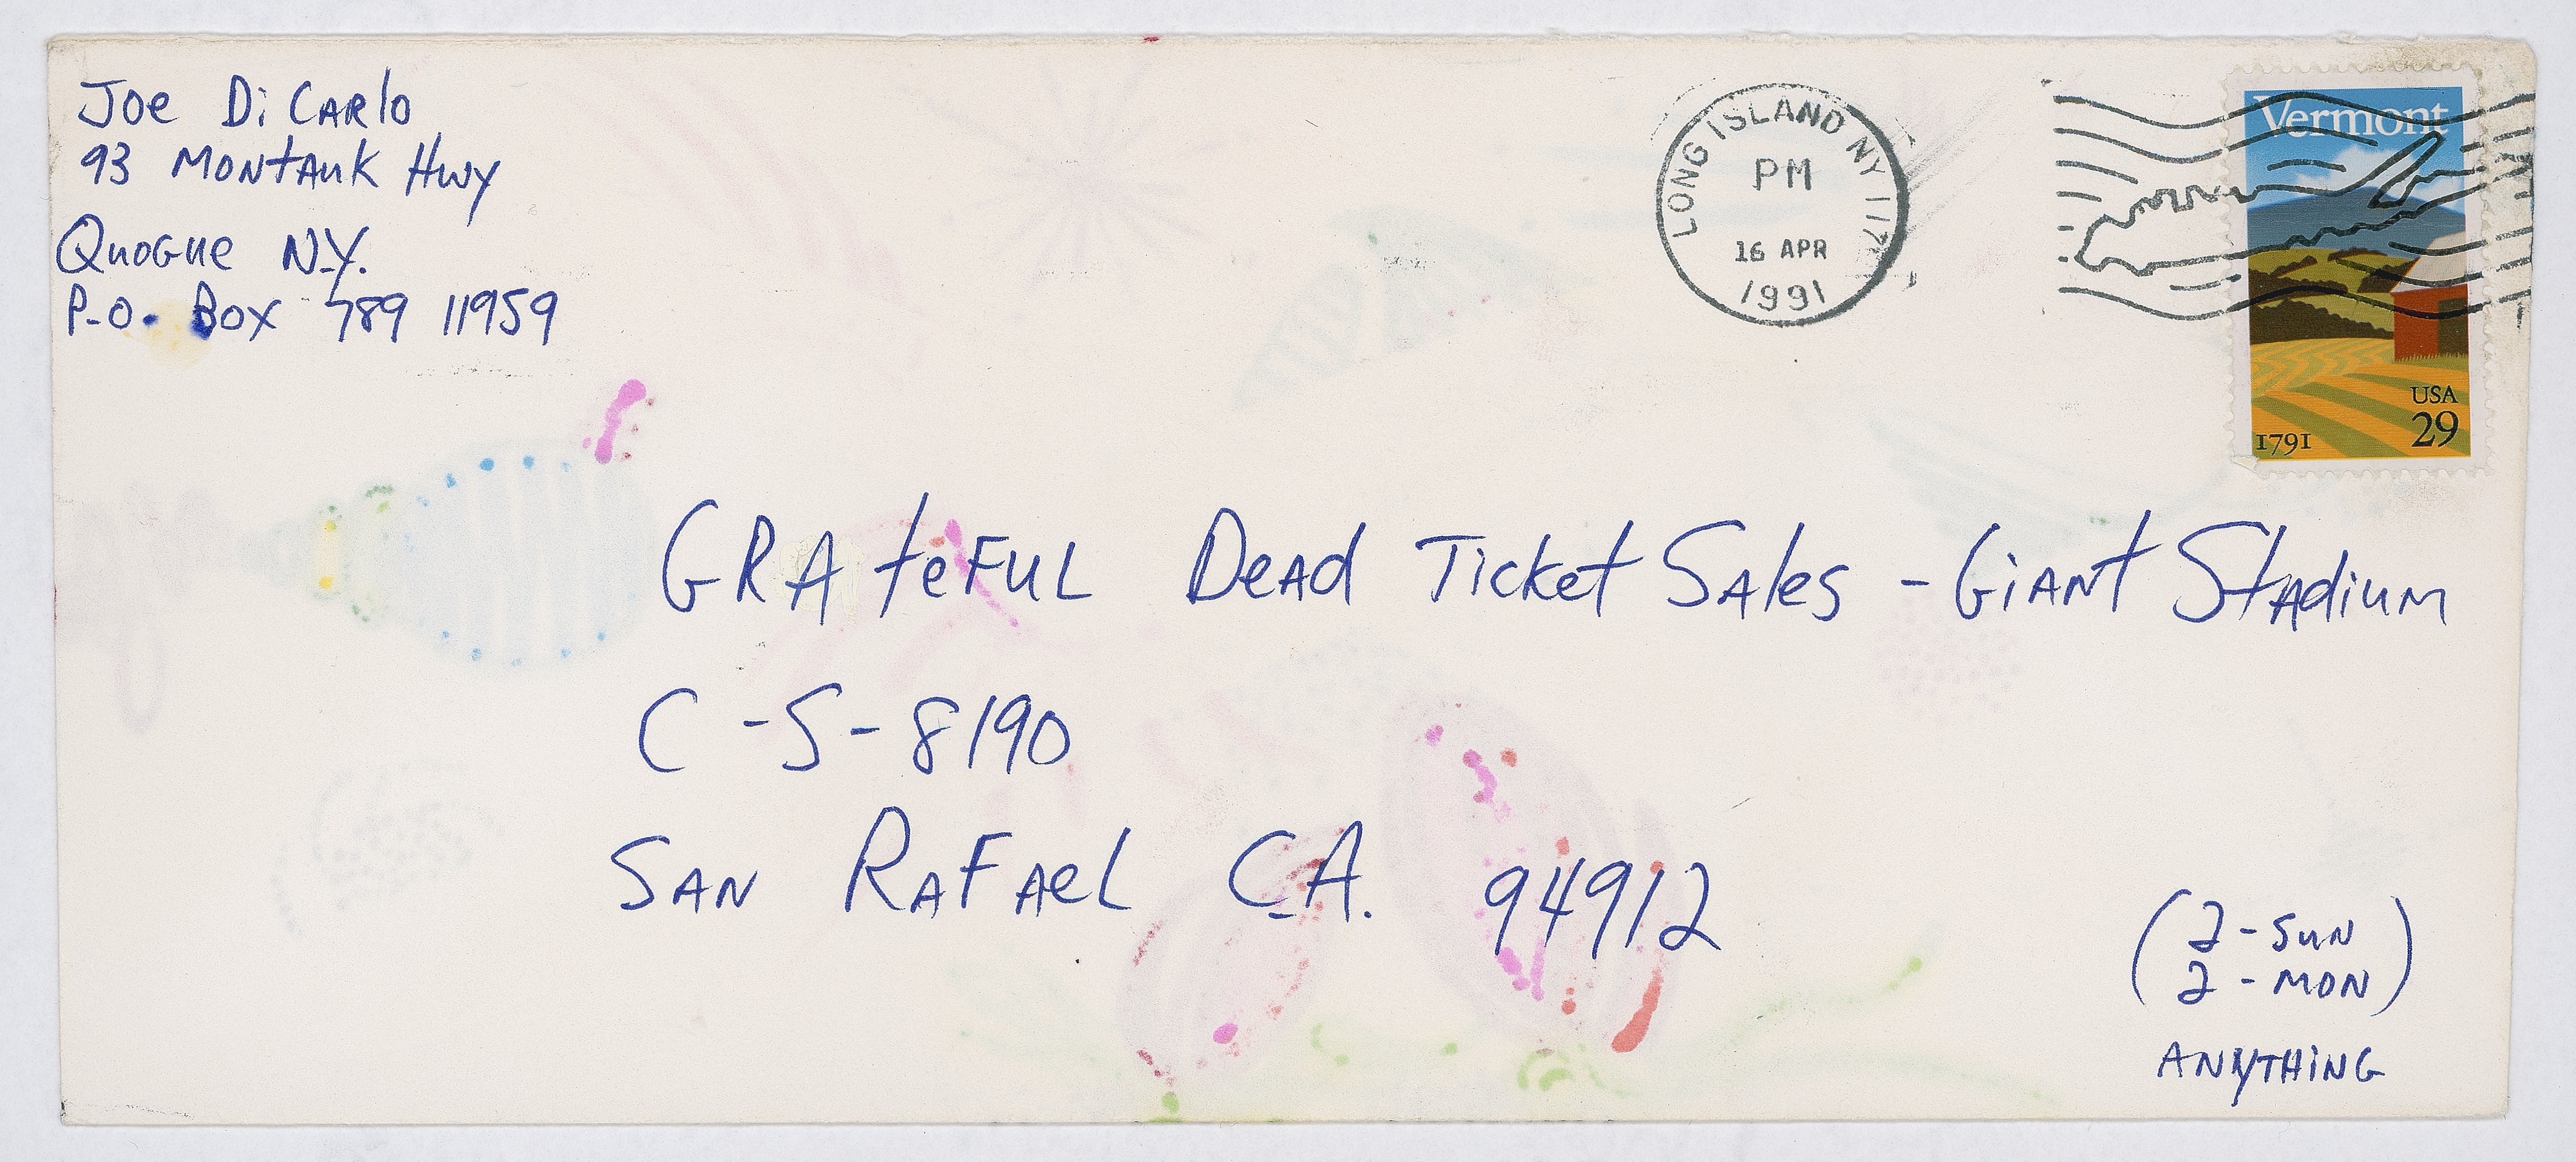 Joe DiCarlo
93 Montauk Hwy
Quogue N.Y.
P.O. Box 789 11959
LONG ISLAND NY 117
PM
16 APR
1991
Vermont
USA
29
1791
Grateful Dead Ticket Sales - Giant Stadium
C-S-8190
San Rafael CA. 94912
(2-Sun
2-Mon)
Anything